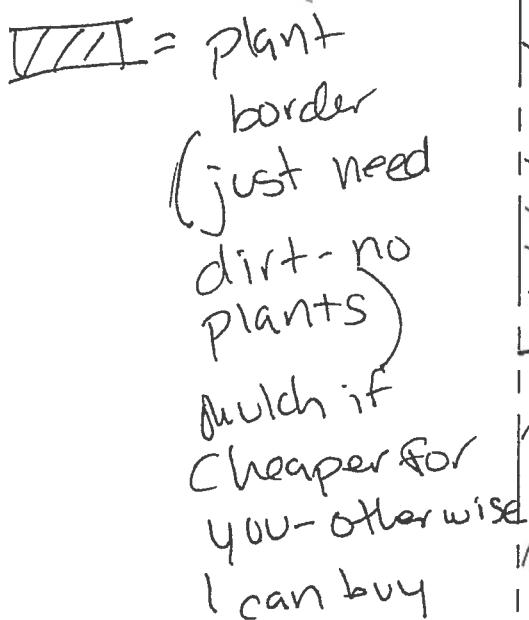 = plant
border
(just need
dirt - no
plants)
mulch if
cheaper for
you - otherwise
I can buy